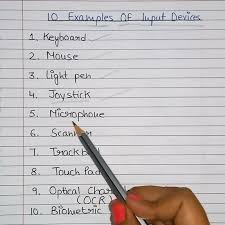 10 Examples Of Input Devices
1. Keyboard
2. Mouse
3. Light pen
4. Joystick
5. Microphone
6.
7.
8. Touch Pad
9. Optical
(OCR)
10. Biometric